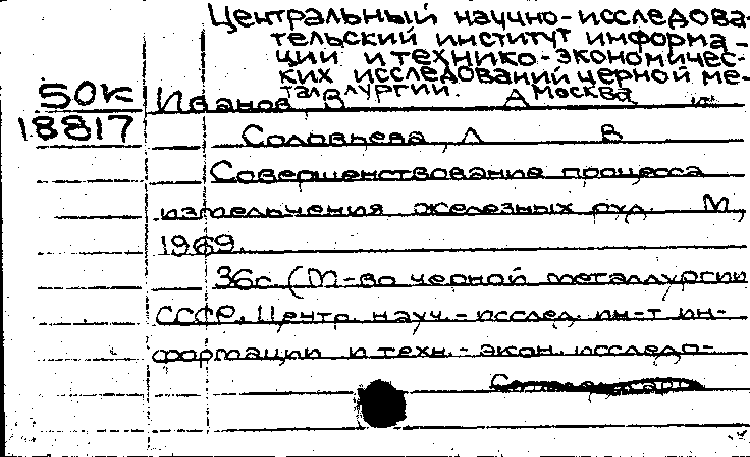 Центральный научно-исследова-
тельский институт информа-
ции и технико-экономичес-
ких исследований черной ме-
таллургии. Москва
50К Иванов В А и
18817 Соловьева, Л В
Совершенствование процесса
измельчения железных руд. М,
1969.
36с. (М-во черной металлургии
СССР. Центр. науч.-исслед. ин-т ин-
формации и техн.-экон. исследо-